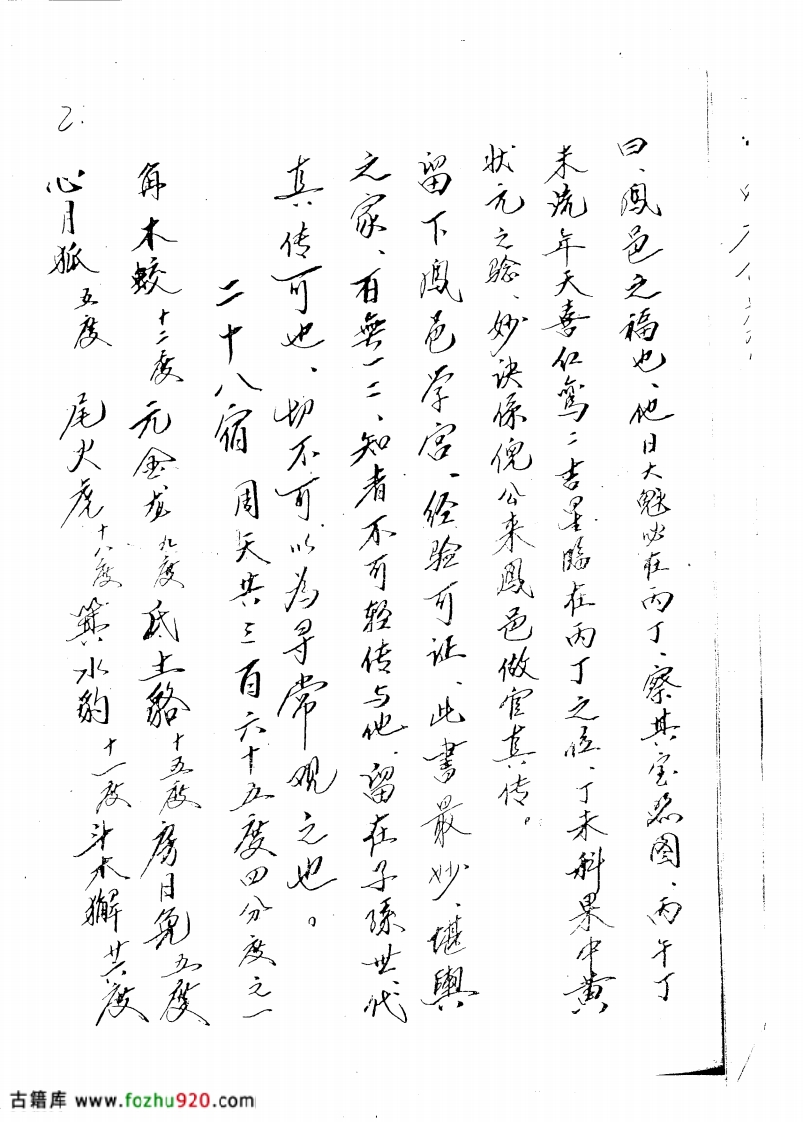 曰、鳳邑之福也、他日大魁必在丙丁、察其宝照图、丙午丁
未流年天喜红鸾二吉星临在丙丁之位、丁未科果中黄
状元之验、妙诀係倪公来鳳邑做官真传。
留下鳳邑学宫、经验可证、此書最妙、堪舆
之家、百無一二、知者不可轻传与他、留在子孫世代
真传可也、切不可以為寻常观之也。
二十八宿 周天共三百六十五度四分度之一
角木蛟十二度 亢金龙九度 氐土貉十五度 房日兔五度
心月狐五度 尾火虎十八度 箕水豹十一度 斗木獬廿六度
2.
古籍库 www.fozhu920.com